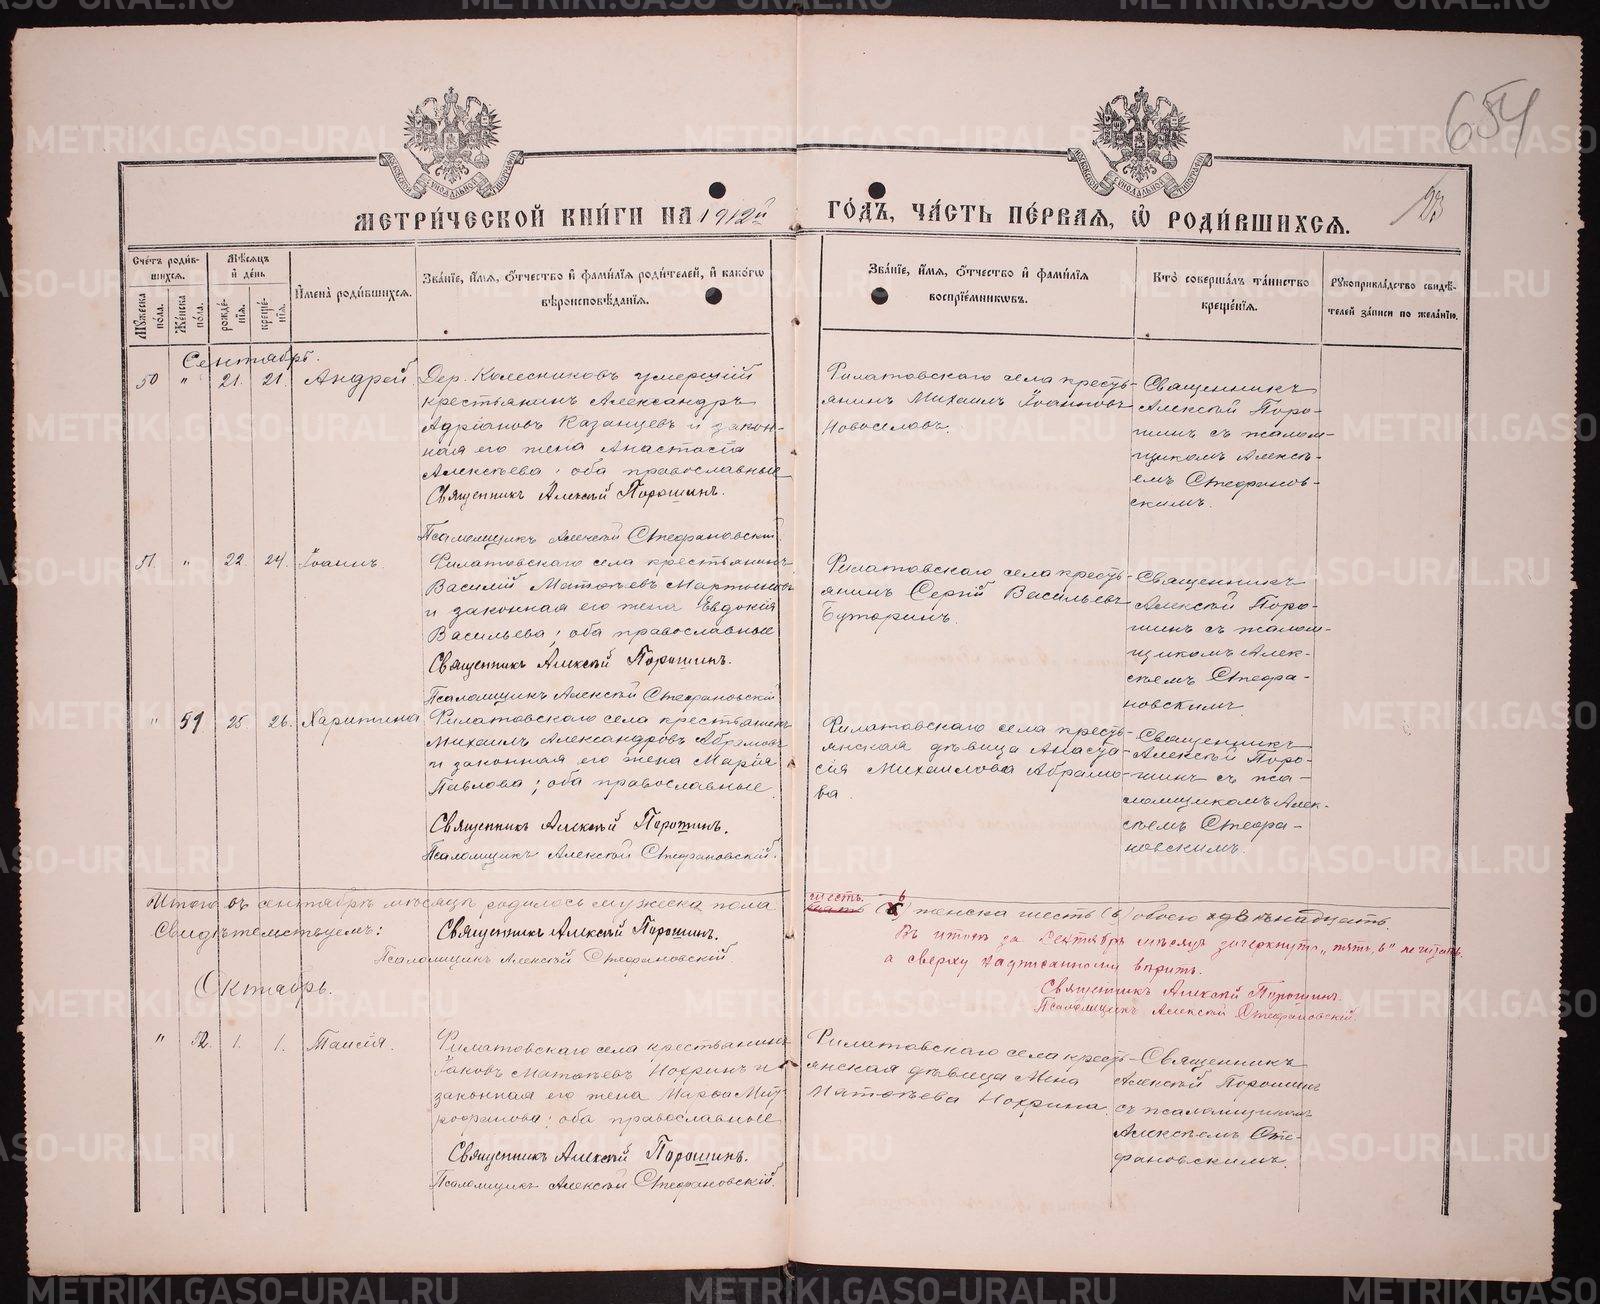 654
23
МЕТРИ́ЧЕСКОЙ КНИ́ГИ НА 1912й ГО́ДЪ, ЧА́СТЬ ПЕ́РВАЯ, Ѡ РОДИ́ВШИХСЯ.
Сче́тъ роди́вшихся.
Мꙋжеска по́ла.
Же́нска по́ла.
Мѣ́сяцъ и́ де́нь
рожде́нїя.
креще́нїя.
И҆мена̀ роди́вшихся.
Зва́нїе, и҆́мя, ѻ҆́тчество и҆ фами́лїя роди́телей, и҆ како́гѡ
вѣроисповѣ́данїя.
Зва́нїе, и҆́мя, ѻ҆́тчество и҆ фами́лїя
воспрїе́мниковъ.
Кто̀ соверша́лъ та́инство
креще́нїя.
Рꙋкоприкла́дство свидѣ́-
телей за́писи по жела́нїю.
Сентябрь.
50 " 21. 21. Андрей
Дер. Колесниковъ умершій
крестьянинъ Александръ
Адріановъ Казанцевъ и закон-
ная его жена Анастасія
Алексѣева; оба православные
Священникъ Алексѣй Порошинъ.
Псаломщикъ Алексѣй Стефановскій
Филатовскаго села кресть-
янинъ Михаилъ Іоанновъ
Новоселовъ.
Священникъ
Алексѣй Поро-
шинъ съ псалом-
щикомъ Алексѣ-
емъ Стефанов-
скимъ.
51. " 22. 24. Іоаннъ.
Филатовскаго села крестьянинъ
Василій Матѳѣевъ Мартыновъ
и законная его жена Евдокія
Васильева; оба православные
Священникъ Алексѣй Порошинъ.
Псаломщикъ Алексѣй Стефановскій
Филатовскаго села кресть-
янинъ Сергій Васильевъ
Буторинъ.
Священникъ
Алексѣй Поро-
шинъ съ псалом-
щикомъ Алек-
сѣемъ Стефа-
новскимъ.
" 51 25. 26. Харитина
Филатовскаго села крестьянинъ
Михаилъ Александровъ Абрамовъ
и законная его жена Марія
Павлова; оба православные
Священникъ Алексѣй Порошинъ.
Псаломщикъ Алексѣй Стефановскій.
Филатовскаго села кресть-
янская дѣвица Анаста-
сія Михаилова Абрамо-
ва.
Священникъ
Алексѣй Поро-
шинъ съ пса-
ломщикомъ Алек-
сѣемъ Стефа-
новскимъ.
Итого въ сентябрѣ мѣсяцѣ родилось мужеска пола
шесть. 6
пять женска шесть (6) обоего двѣнадцать.
Свидѣтельствуемъ: Священникъ Алексѣй Порошинъ.
Псаломщикъ Алексѣй Стефановскій.
Въ итогѣ за Сентябрь мѣсяцъ зачеркнуто „пять, 5" не читать,
а сверху надписанному вѣрить.
Священникъ Алексѣй Порошинъ.
Псаломщикъ Алексѣй Стефановскій.
Октябрь.
" 52. 1. 1. Таисія.
Филатовскаго села крестьянинъ
Іаковъ Матѳѣевъ Нохринъ и
законная его жена Марѳа Мит-
рофанова; оба православные
Священникъ Алексѣй Порошинъ.
Псаломщикъ Алексѣй Стефановскій.
Филатовскаго села кресть-
янская дѣвица
Матѳѣева Нохрина.
Священникъ
Алексѣй Порошинъ
съ псаломщикомъ
Алексѣемъ Сте-
фановскимъ.
METRIKI.GASO-URAL.RU